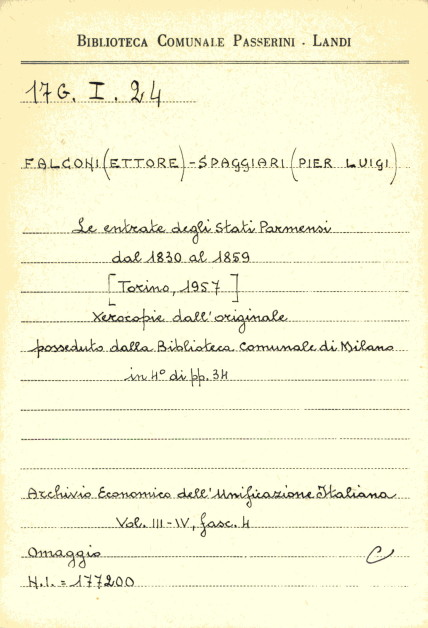 BIBLIOTECA COMUNALE PASSERINI - LANDI
17 G. I. 24
FALCONI (ETTORE) - SPAGGIARI (PIER LUIGI)
Le entrate degli Stati Parmensi
dal 1830 al 1859
[Torino, 1957]
Xerocopie dall'originale
posseduto dalla Biblioteca Comunale di Milano
in 4° di pp. 34
Archivio Economico dell'Unificazione Italiana
Vol. III-IV, fasc. 4
Omaggio C
N.I. = 177200